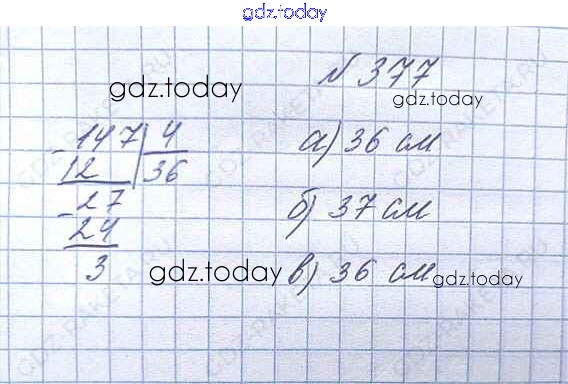 gdz.today
№ 377
gdz.today
gdz.today
147 | 4
- 12 36
а) 36 см
- 27
24
б) 37 см
3
gdz.today
в) 36 см
gdz.today
GDZ-RAKETA.RU